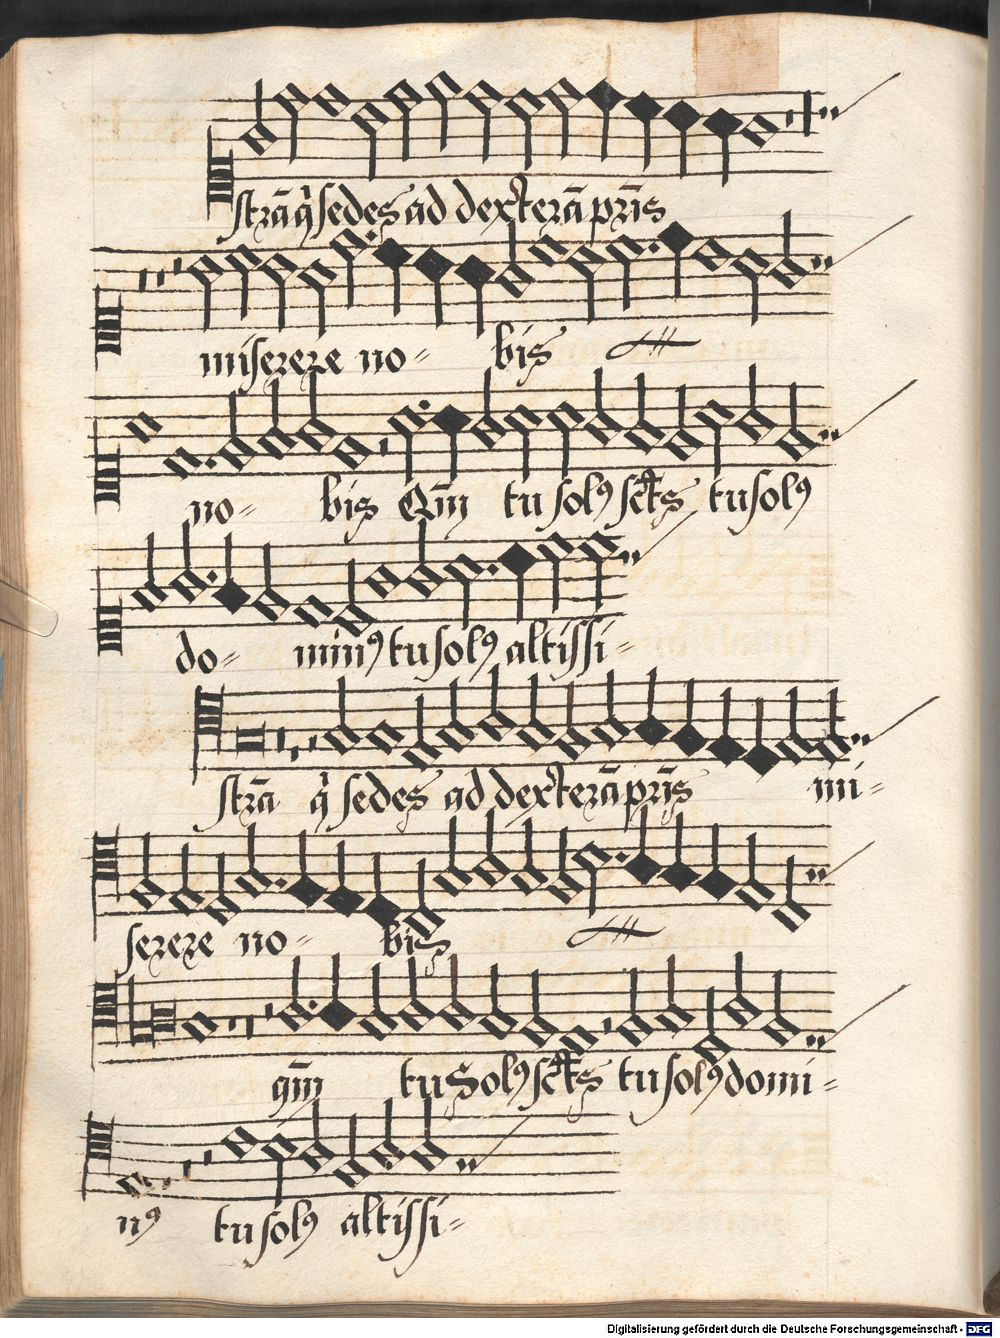 strā q̄ sedes ad dexterā pr̄is
miserere no= bis
no= bis Qm̄ tu solꝰ sc̄ts tu solꝰ
do= minꝰ tu solꝰ altissi=
strā q̄ sedes ad dexterā pr̄is mi=
serere no= bis
qm̄ tu Solꝰ sc̄ts tu solꝰ domi=
nꝰ tu solꝰ altissi=
Digitalisierung gefördert durch die Deutsche Forschungsgemeinschaft - DFG